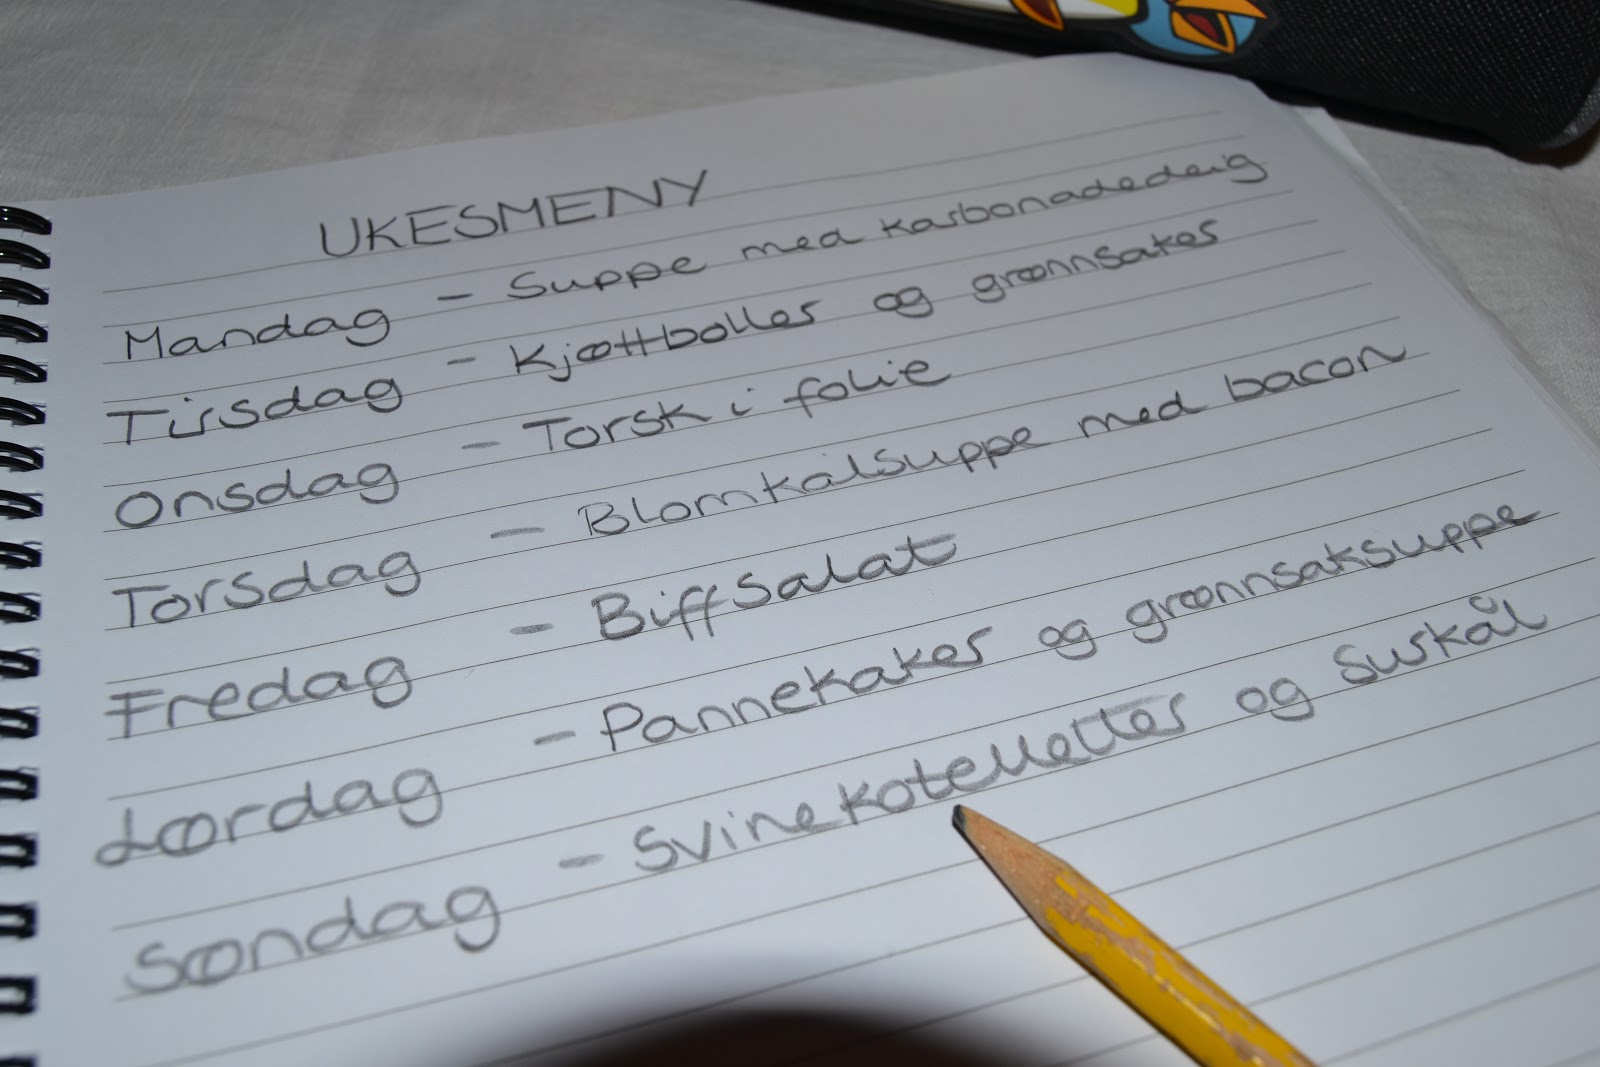 UKESMENY
Mandag - Suppe med karbonadedeig
Tirsdag - Kjøttboller og grønnsaker
Onsdag - Torsk i folie
Torsdag - Blomkålsuppe med bacon
Fredag - Biffsalat
Lørdag - Pannekaker og grønnsaksuppe
Søndag - Svinekoteletter og Surkål